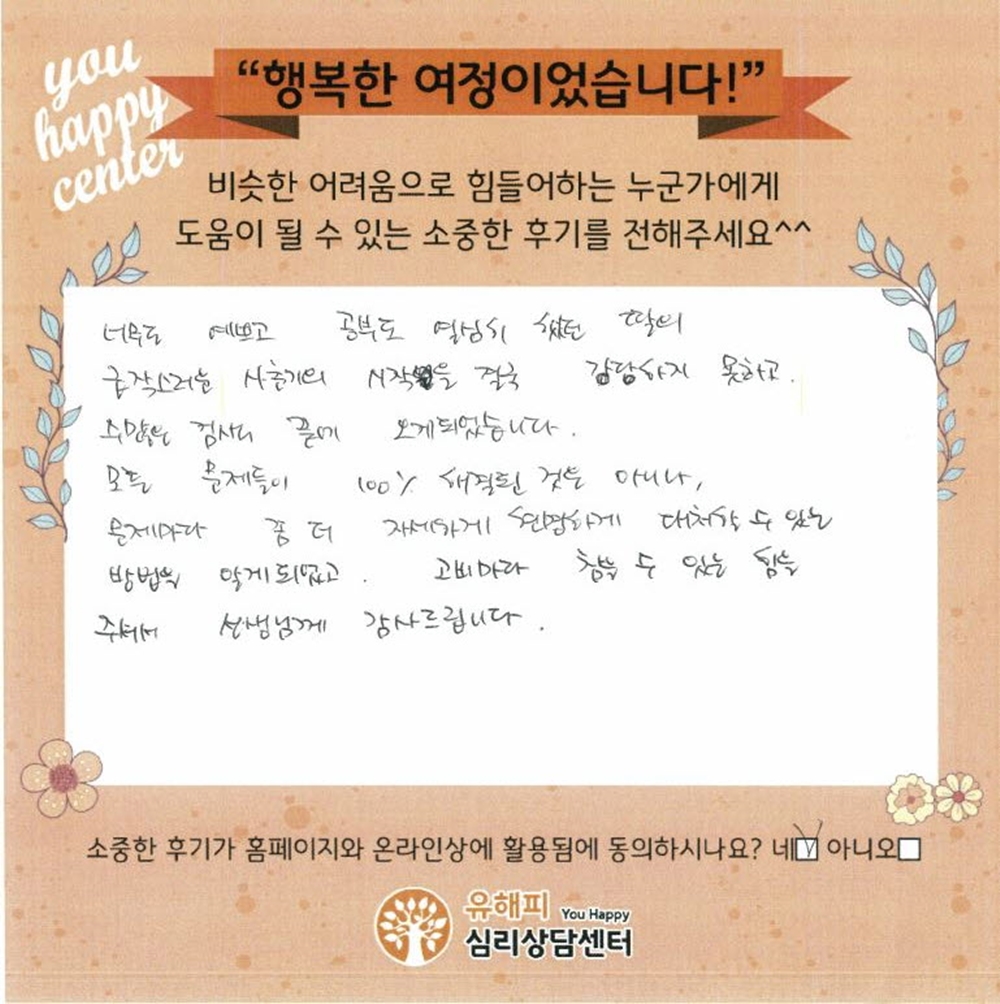 you
happy
center
“행복한 여정이었습니다!”
비슷한 어려움으로 힘들어하는 누군가에게
도움이 될 수 있는 소중한 후기를 전해주세요^^
너무도 예쁘고 공부도 열심히 했던 딸의
급작스러운 사춘기의 시작을 결국 감당하지 못하고.
수많은 검사 끝에 오게되었습니다.
모든 문제들이 100% 해결된 것은 아니나,
문제마다 좀 더 자세하게 현명하게 대처할 수 있는
방법을 알게되었고. 고비마다 참을 수 있는 힘을
주셔서 선생님께 감사드립니다.
소중한 후기가 홈페이지와 온라인상에 활용됨에 동의하시나요? 네 아니오
유해피 You Happy
심리상담센터